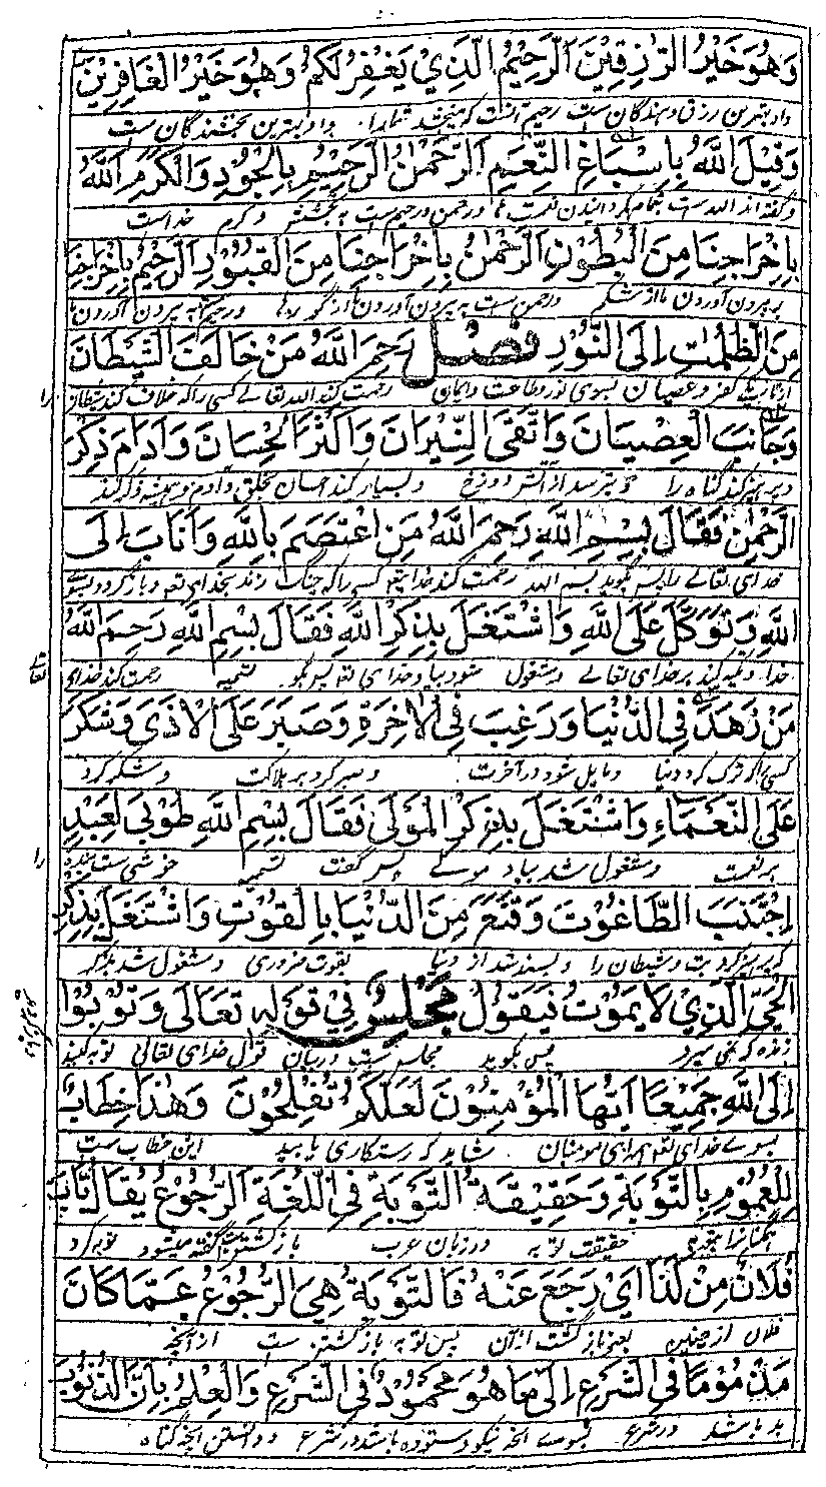 وَهُوَ خَيْرُ الرَّازِقِيْنَ اَلرَّحِيْمُ الَّذِيْ يَغْفِرُ لَكُمْ وَهُوَ خَيْرُ الْغَافِرِيْنَ
واو بهترین رزق دهندگان ست رحیم آنست که میبخشد شمارا و او بهترین بخشندگان ست
وَقِيْلَ اللّٰهُ بِاِسْبَاغِ النَّعِيْمِ اَلرَّحْمٰنُ الرَّحِيْمُ بِالْجُوْدِ وَالْكَرَمِ اَللّٰهُ
و گفته اند الله ست بتمام گردانیدن نعمت ها ورحمن ورحیم ست به بخشش و کرم خداست
بِاِخْرَاجِنَا مِنَ الْبُطُوْنِ اَلرَّحْمٰنُ بِاِخْرَاجِنَا مِنَ الْقُبُوْرِ اَلرَّحِيْمُ بِاِخْرَاجِنَا
بر بیرون آوردن ما از شکم ورحمن ست به بیرون آوردن ما از گورها ورحیم ست به بیرون آوردن ما
مِنَ الظُّلُمٰتِ اِلَى النُّوْرِ فصل رَحِمَ اللّٰهُ مَنْ خَالَفَ الشَّيْطَانَ
از تاریکی کفر و عصیان بسوی نور وطاعت وایمان رحمت کند الله تعالے کسی را که خلاف کند شیطان را
وَجَانَبَ الْعِصْيَانَ وَاتَّقَى النِّيْرَانَ وَاَكْثَرَ الْاِحْسَانَ وَاَدَامَ ذِكْرَ
وپرهیز کند گناه را و بترسد از آتش دوزخ و بسیار کند احسان بخلق و ادام و همیشه ذکر کند
الرَّحْمٰنِ فَقَالَ بِسْمِ اللّٰهِ رَحِمَ اللّٰهُ مَنِ اعْتَصَمَ بِاللّٰهِ وَاَنَابَ اِلَى
خدای تعالے را پس بگوید بسم الله رحمت کند خدا کسی را که چنگ زند بخدای و باز گردد بسوے
اللّٰهِ وَتَوَكَّلَ عَلَى اللّٰهِ وَاشْتَغَلَ بِذِكْرِ اللّٰهِ فَقَالَ بِسْمِ اللّٰهِ رَحِمَ اللّٰهُ
خدا و تکیه کند بر خدای تعالے و مشغول شود بیاد خدای پس بگو تسمیه رحمت کند خدای تعالے
مَنْ زَهَدَ فِي الدُّنْيَا وَرَغِبَ فِي الْاٰخِرَةِ وَصَبَرَ عَلَى الْاَذٰى وَشَكَرَ
کسی را که ترک کرد دنیا و مایل شود در آخرت و صبر کرد بر هلاکت و شکر کرد
عَلَى النَّعْمَاءِ وَاشْتَغَلَ بِذِكْرِ الْمَوْلٰى فَقَالَ بِسْمِ اللّٰهِ طُوْبٰى لِعَبْدٍ
بر نعمت و مشغول شد بیاد مولے پس گفت تسمیه خوشی ست بنده را
اِجْتَنَبَ الطَّاغُوْتَ وَقَنَعَ مِنَ الدُّنْيَا بِالْقُوْتِ وَاشْتَغَلَ بِذِكْرِ
که پرهیز کرد بت و شیطان را و بسند شد از دنیا بقوت ضروری و مشغول شد بذکر
الْحَيِّ الَّذِيْ لَا يَمُوْتُ فَيَقُوْلُ مجلس فِيْ قَوْلِهٖ تَعَالٰى وَتُوْبُوْا
زنده که نمی میرد پس بگوید مجلس ست دربیان قول خدای تعالی توبه کنید
اِلَى اللّٰهِ جَمِيْعًا اَيُّهَا الْمُؤْمِنُوْنَ لَعَلَّكُمْ تُفْلِحُوْنَ وَهٰذَا خِطَابٌ
بسوے خدای همه ای مومنان شاید که رستگاری یابید این خطاب ست
لِلْعُمُوْمِ بِالتَّوْبَةِ وَحَقِيْقَةُ التَّوْبَةِ فِي اللُّغَةِ الرُّجُوْعُ يُقَالُ تَابَ
حقیقت توبه در زبان عرب باز گشتن ست گفته میشود توبه کرد
فُلَانٌ مِنْ كَذَا اَيْ رَجَعَ عَنْهُ فَالتَّوْبَةُ هِيَ الرُّجُوْعُ عَمَّا كَانَ
فلان از چنین یعنی باز گشت از آن پس توبه باز گشتن ست از آنچه
مَذْمُوْمًا فِي الشَّرْعِ اِلٰى مَا هُوَ مَحْمُوْدٌ فِي الشَّرْعِ وَالْعِلْمُ بِاَنَّ الذُّنُوْبَ
بد باشد در شرع بسوے آنچه نیکو و ستوده باشد در شرع و دانستن آنچه گناه